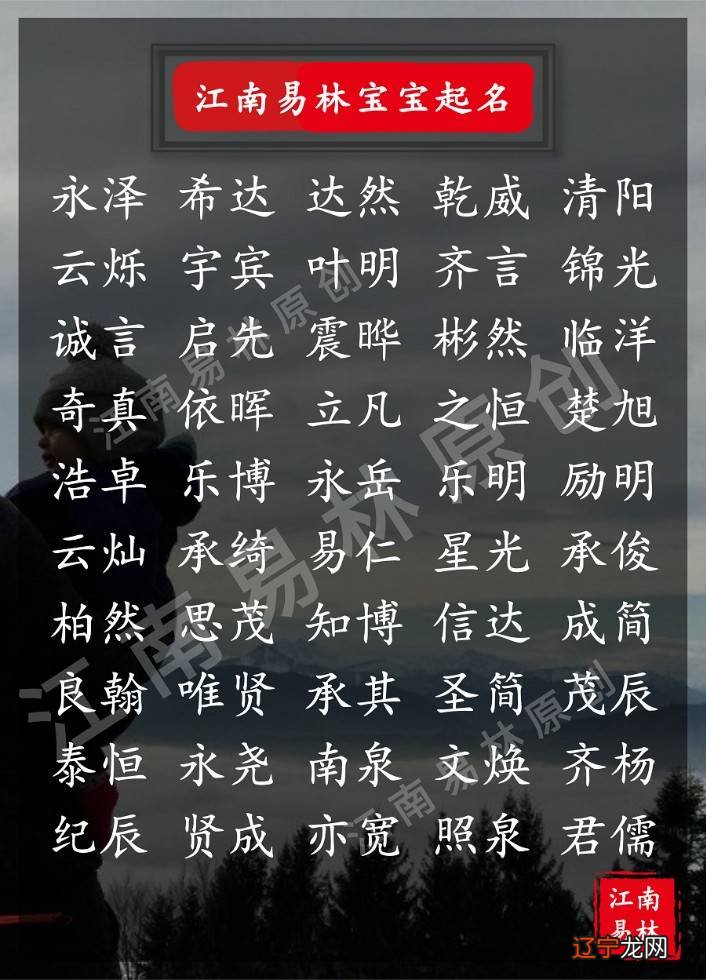 江南易林宝宝起名
永泽 希达 达然 乾威 清阳
云烁 宇宾 叶明 齐言 锦光
诚言 启先 震晔 彬然 临洋
奇真 依晖 立凡 之恒 楚旭
浩卓 乐博 永岳 乐明 励明
云灿 承绮 易仁 星光 承俊
柏然 思茂 知博 信达 成简
良翰 唯贤 承其 圣简 茂辰
泰恒 永尧 南泉 文焕 齐杨
纪辰 贤成 亦宽 照泉 君儒
江南易林原创
江南易林原创
江南易林原创
江南
易林
辽宁龙网